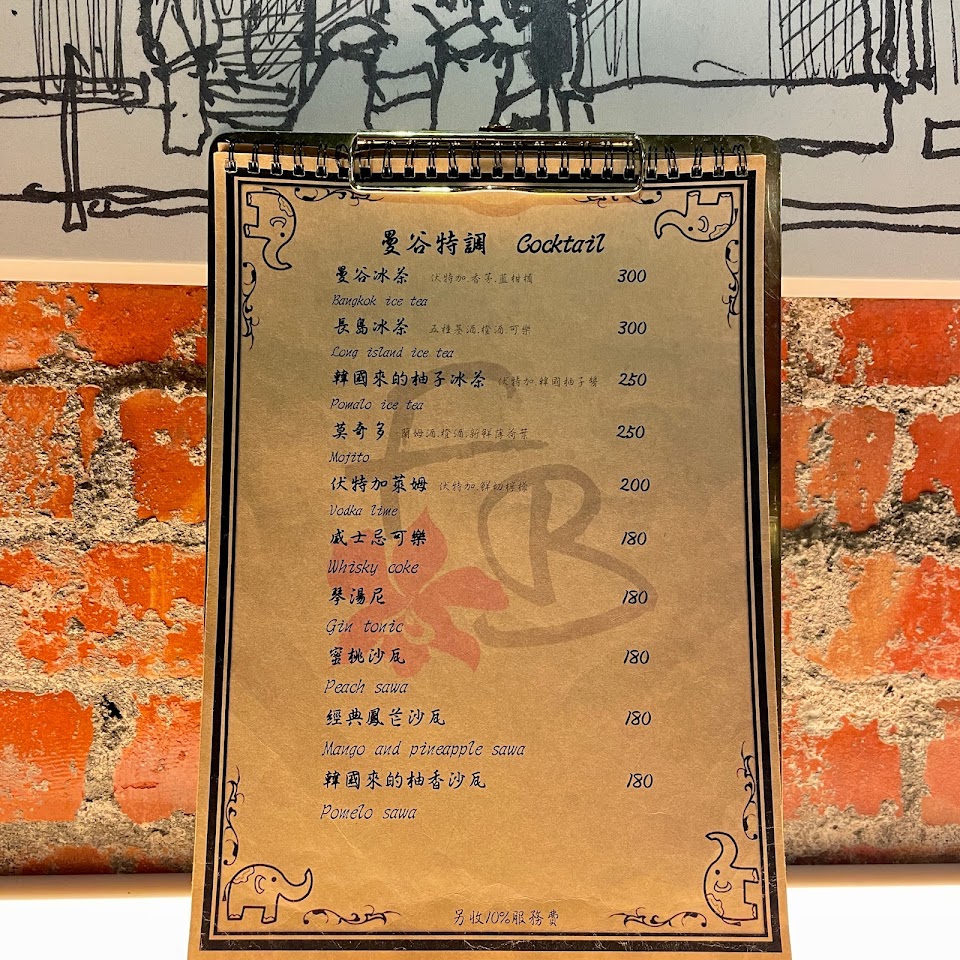 曼谷特調 Cocktail
曼谷冰茶 伏特加.香茅.藍柑橘 300
Bangkok ice tea
長島冰茶 五種基酒.橙酒.可樂 300
Long island ice tea
韓國來的柚子冰茶 伏特加.韓國柚子醬 250
Pomalo ice tea
莫奇多 蘭姆酒.橙酒.新鮮薄荷葉 250
Mojito
伏特加萊姆 伏特加.鮮切檸檬 200
Vodka lime
威士忌可樂 180
Whisky coke
琴湯尼 180
Gin tonic
蜜桃沙瓦 180
Peach sawa
經典鳳芒沙瓦 180
Mango and pineapple sawa
韓國來的柚香沙瓦 180
Pomelo sawa
另收10%服務費